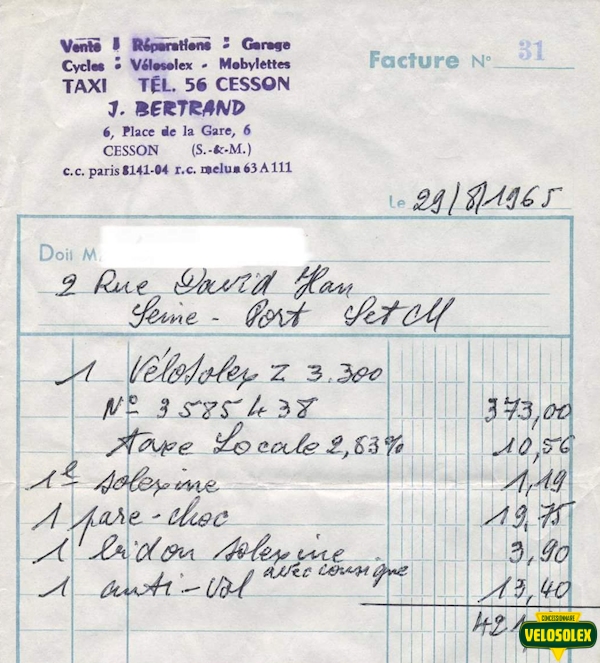 Vente : Réparations : Garage
Cycles : Vélosolex - Mobylettes
TAXI TÉL. 56 CESSON
J. BERTRAND
6, Place de la Gare, 6
CESSON (S.-&-M.)
c.c. paris 8141-04 r.c. melun 63 A 111
Facture N° 31
Le 29/8/1965
Doit M
2 Rue David Han
Seine-Port Set M
1 Vélosolex Z 3.300
N° 3585438 373,00
Taxe Locale 2,83% 10,56
1l solexine 1,19
1 pare-choc 19,75
1 bidon solexine avec consigne 3,90
1 anti-vol 13,40
421
CONCESSIONNAIRE
VELOSOLEX